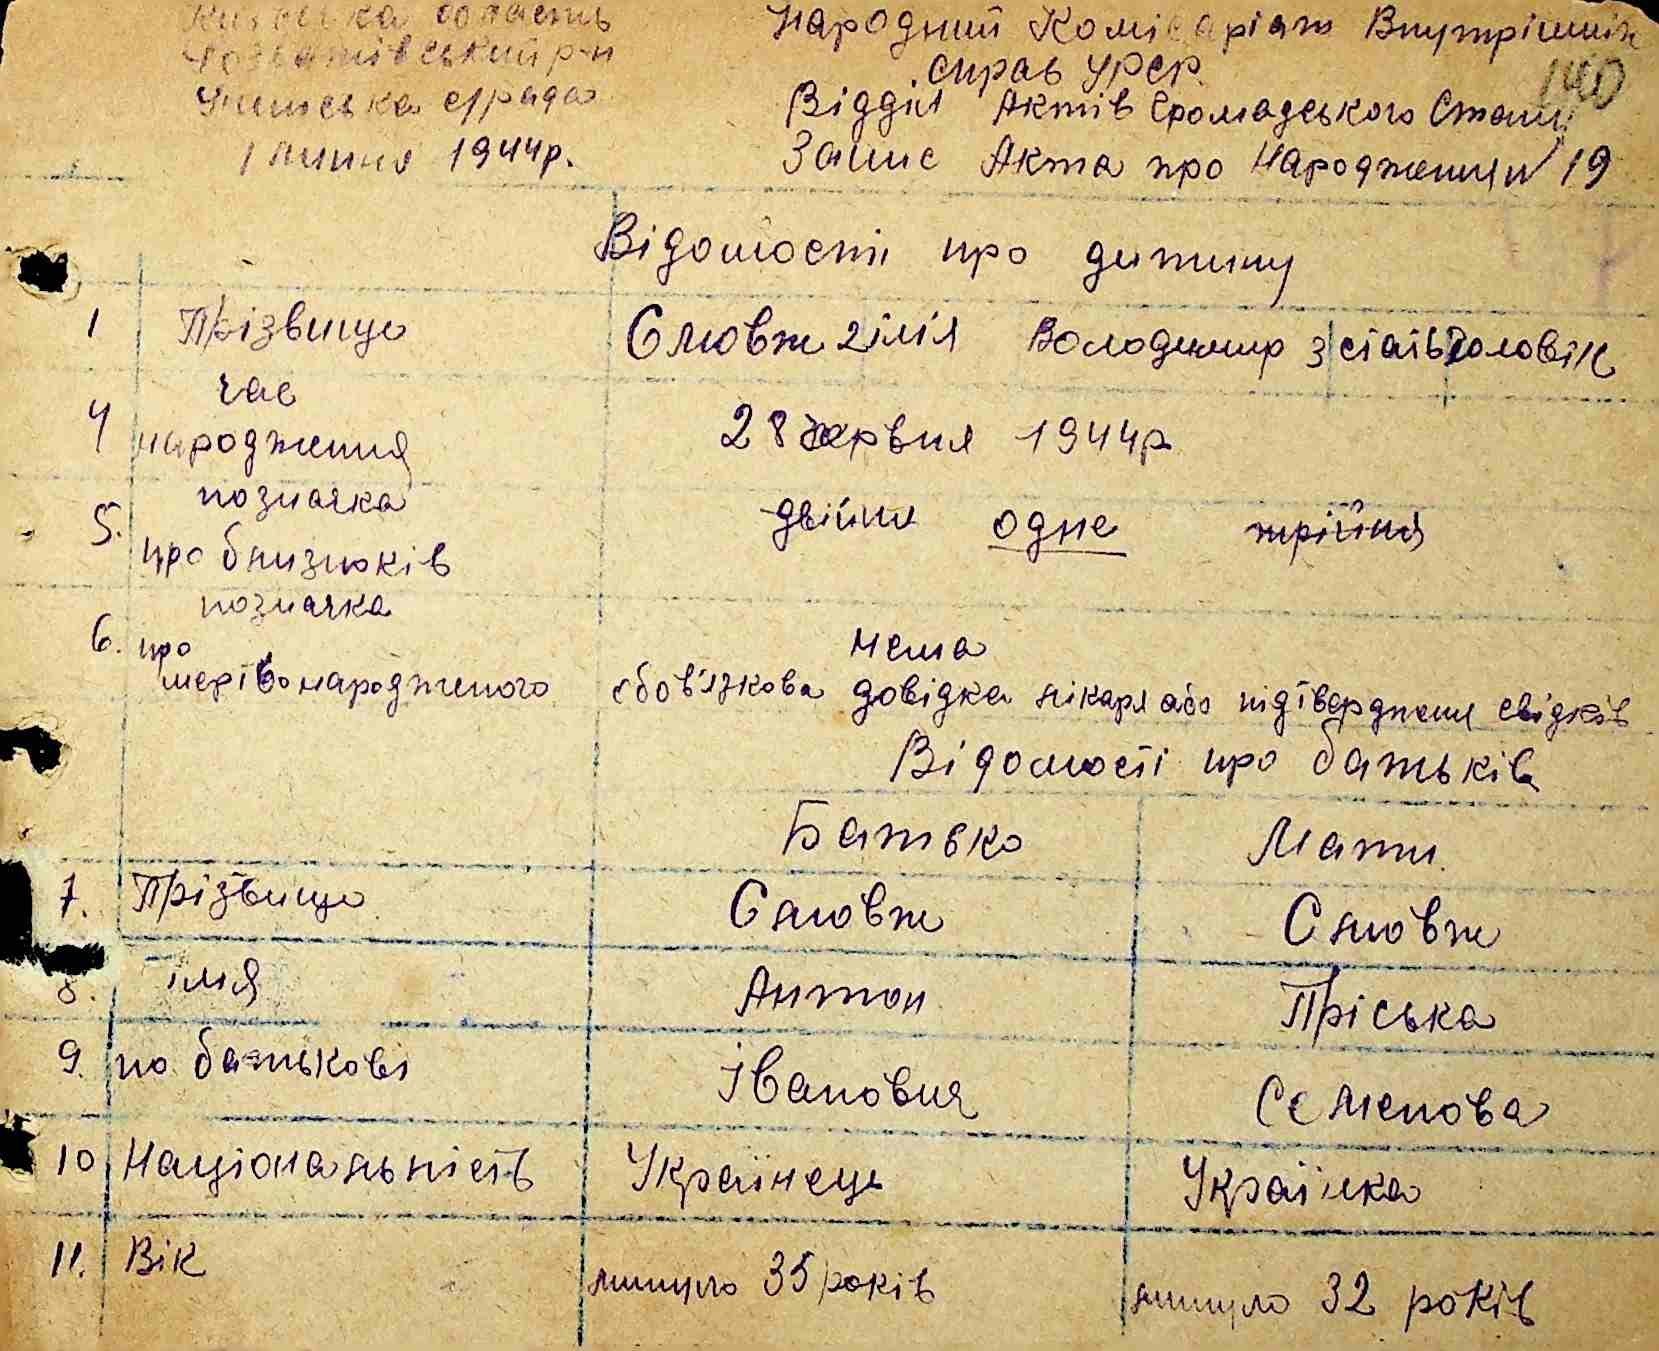 Київська область
Розважівський р-н
с/рада
1 липня 1944р.
Народний Комісаріат Внутрішніх
справ УРСР.
140
Відділ Актів Громадського Стану
Запис Акта про Народження N 19
Відомості про дитину
1 Прізвище Слювж 2 ім'я Володимир 3 стать чоловік
4 час народження 28 червня 1944р
5. позначка про близнюків двійня одне трійня
6. позначка про мертвонародженого нема
обов'язкова довідка лікаря або підтвердження свідків
Відомості про батьків
Батько Мати
7. Прізвище Слювж Слювж
8. ім'я Антон Пріська
9. по батькові Іванович Семенова
10 Національність Українець Українка
11. Вік минуло 35 років минуло 32 років